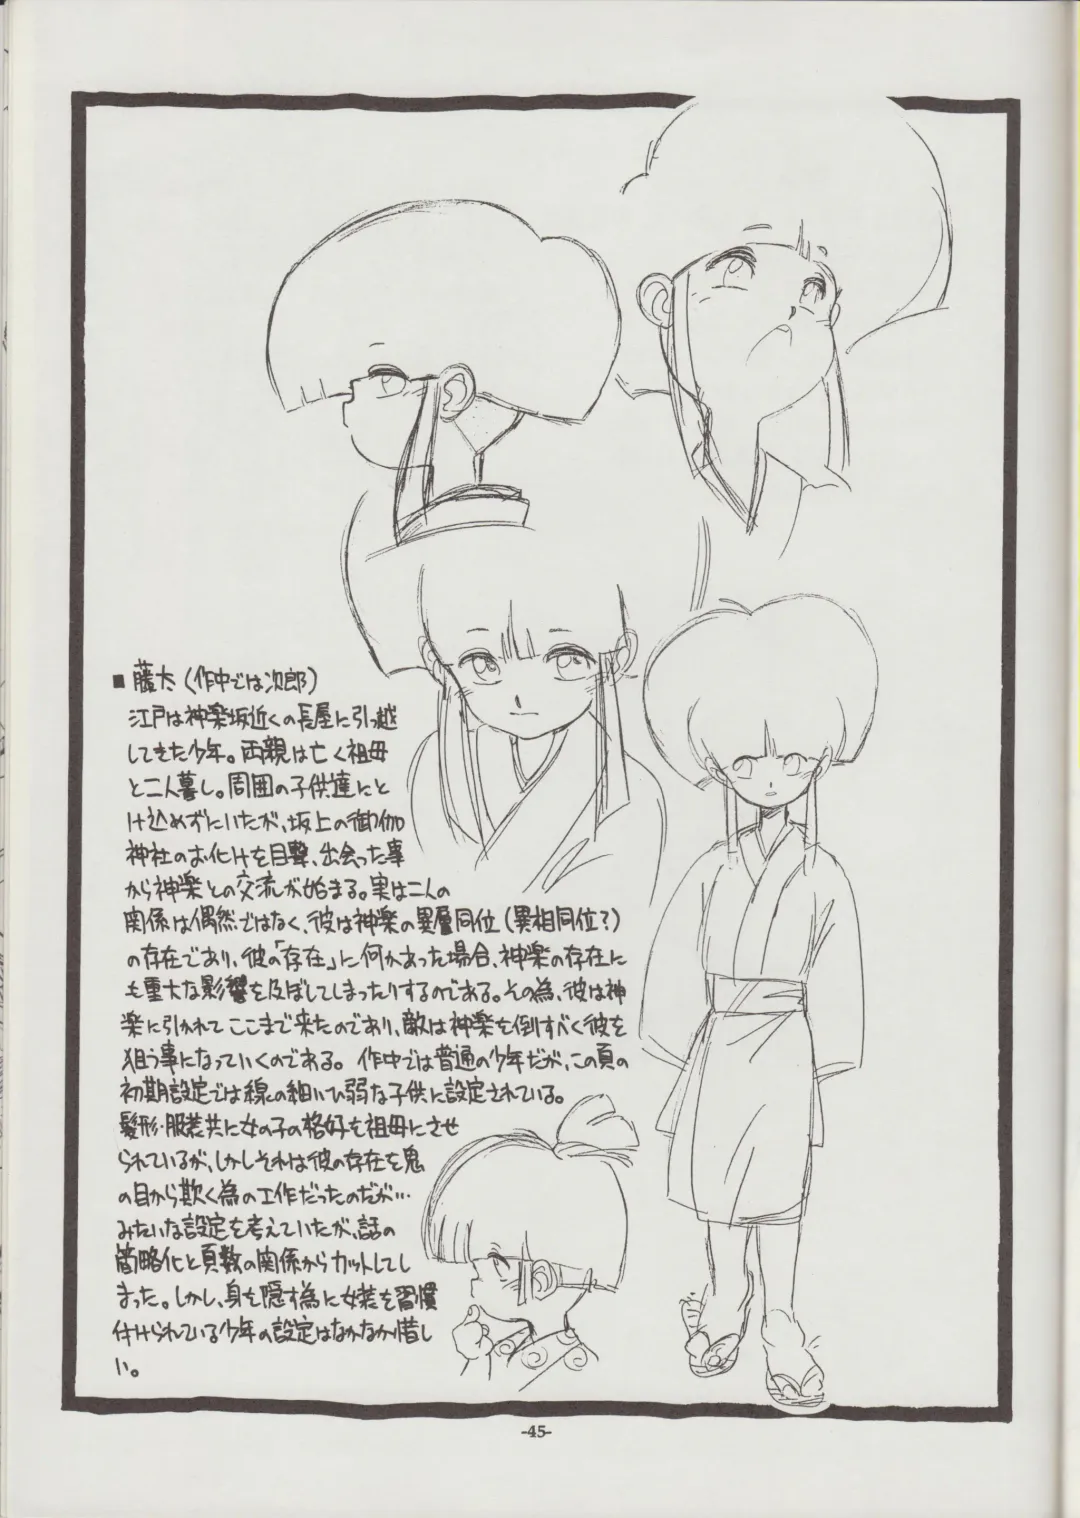 ■ 藤太(作中では次郎)
江戸は神楽坂近くの長屋に引っ越
してきた少年。両親は亡く祖母
と二人暮し。周囲の子供達にと
け込めずにいたが、坂上の御伽
神社のお化けを目撃、出会った事
から神楽との交流が始まる。実は二人の
関係は偶然ではなく、彼は神楽の異層同位(異相同位?)
の存在であり、彼の「存在」に何かあった場合、神楽の存在に
も重大な影響を及ぼしてしまったりするのである。その為、彼は神
楽に引かれてここまで来たのであり、敵は神楽を倒すべく彼を
狙う事になっていくのである。作中では普通の少年だが、この頁の
初期設定では線の細いひ弱な子供に設定されている。
髪形・服装共に女の子の格好を祖母にさせ
られているが、しかしそれは彼の存在を鬼
の目から欺く為の工作だったのだが…
みたいな設定を考えていたが、話の
簡略化と頁数の関係からカットしてし
まった。しかし、身を隠す為に女装を習慣
付けられている少年の設定はなかなか惜し
い。
-45-